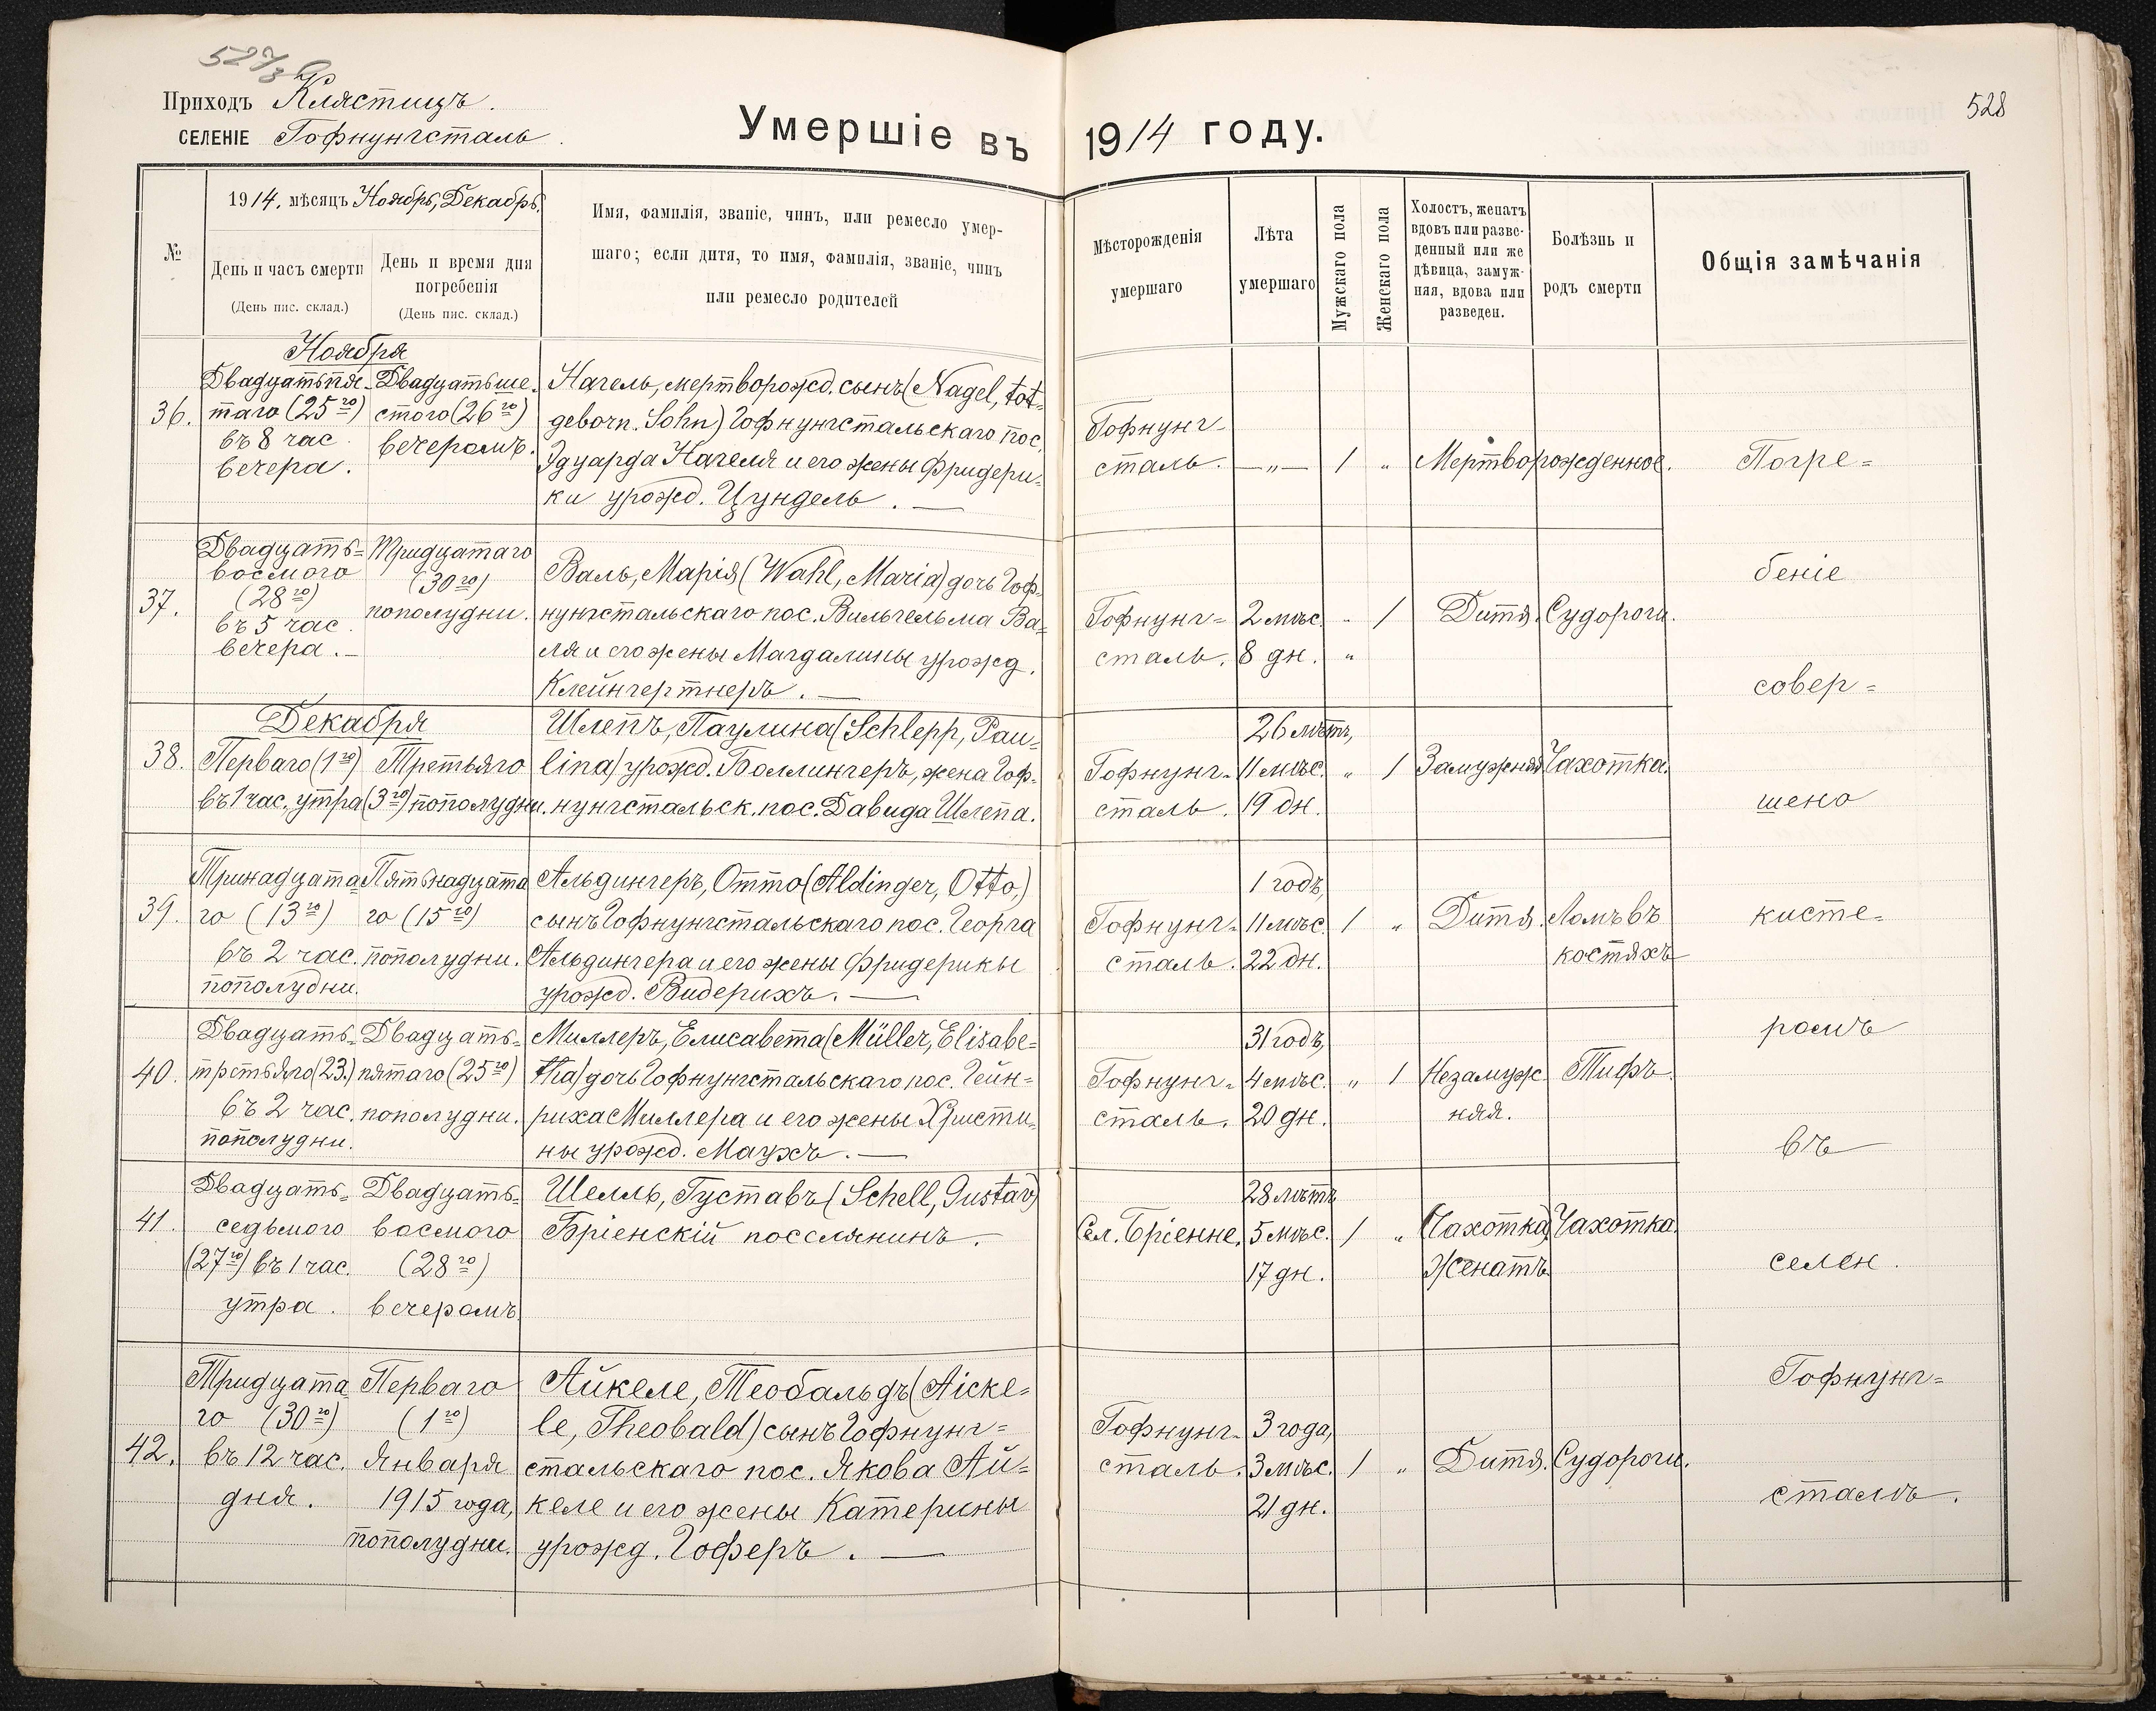 528
Приходъ Клястицъ.
СЕЛЕНІЕ Гофнунгсталь.
Умершіе въ 1914 году.
№
1914. мѣсяцъ Ноябрь, Декабрь.
День и часъ смерти
(День пис. склад.)
День и время дня
погребенія
(День пис. склад.)
Имя, фамилія, званіе, чинъ, или ремесло умер-
шаго; если дитя, то имя, фамилія, званіе, чинъ
или ремесло родителей
Мѣсторожденія
умершаго
Лѣта
умершаго
Мужскаго пола
Женскаго пола
Холостъ, женатъ
вдовъ или разве-
денный или же
дѣвица, замуж-
няя, вдова или
разведен.
Болѣзнь и
родъ смерти
Общія замѣчанія
Ноября
36.
Двадцатьпя-
таго (25го)
въ 8 час.
вечера.
Двадцатьше-
стого (26го)
вечеромъ.
Нагель, мертворожд. сынъ (Nagel, tot-
geborn. Sohn) Гофнунгстальскаго пос.
Эдуарда Нагеля и его жены Фридери-
ки урожд. Цундель. —
Гофнунг-
сталь.
—„—
1
„
Мертворожденное.
37.
Двадцать-
восмого
(28го)
въ 5 час.
вечера. —
Тридцатаго
(30го)
пополудни.
Валь, Марія (Wahl, Maria) дочь Гоф-
нунгстальскаго пос. Вильгельма Ва-
ля и его жены Магдалины урожд.
Клейнгертнеръ. —
Гофнунг=
сталь.
2 мѣс.
8 дн.
„
1
Дитя.
Судороги.
Декабря
38.
Перваго (1го)
въ 1 час. утра
Третьяго
(3го) пополудни.
Шлепъ, Паулина (Schlepp, Pau-
lina) урожд. Боллингеръ, жена Гоф-
нунгстальск. пос. Давида Шлепа.
Гофнунг-
сталь.
26 лѣтъ,
11 мѣс.
19 дн.
„
1
Замужняя
Чахотка.
39.
Тринадцата-
го (13го)
въ 2 час.
пополудни.
Пятьнадцата
го (15го)
пополудни.
Альдингеръ, Отто (Aldinger, Otto,)
сынъ Гофнунгстальскаго пос. Георга
Альдингера и его жены Фридерикы
урожд. Видерихъ. —
Гофнунг-
сталь.
1 годъ,
11 мѣс.
22 дн.
1
„
Дитя.
Ломъ въ
костяхъ
40.
Двадцать-
третьяго (23.)
въ 2 час.
пополудни.
Двадцать-
пятаго (25го)
пополудни.
Миллеръ, Елисавета (Müller, Elisabe-
tha) дочь Гофнунгстальскаго пос. Гейн-
риха Миллера и его жены Христи-
ны урожд. Маухъ. —
Гофнунг-
сталь.
31 годъ,
4 мѣс.
20 дн.
„
1
Незамуж
няя.
Тифъ.
41.
Двадцать-
седьмого
(27го) въ 1 час.
утра.
Двадцать-
восмого
(28го)
вечеромъ
Шелль, Густавъ (Schell, Gustav)
Бріенскій поселянинъ.
Сел. Бріенне.
28 лѣтъ
5 мѣс.
17 дн.
1
„
(Чахотка)
Женатъ.
Чахотка.
42.
Тридцата
го (30го)
въ 12 час.
дня.
Перваго
(1го)
Января
1915 года,
пополудни.
Айкеле, Теобальдъ (Aicke-
le, Theobald) сынъ Гофнунг=
стальскаго пос. Якова Ай-
келе и его жены Катерины
урожд. Гоферъ. —
Гофнунг-
сталь.
3 года,
3 мѣс.
21 дн.
1
„
Дитя.
Судороги.
Погре=
беніе
совер=
шено
кисте=
ромъ
въ
селен.
Гофнунг=
сталь.